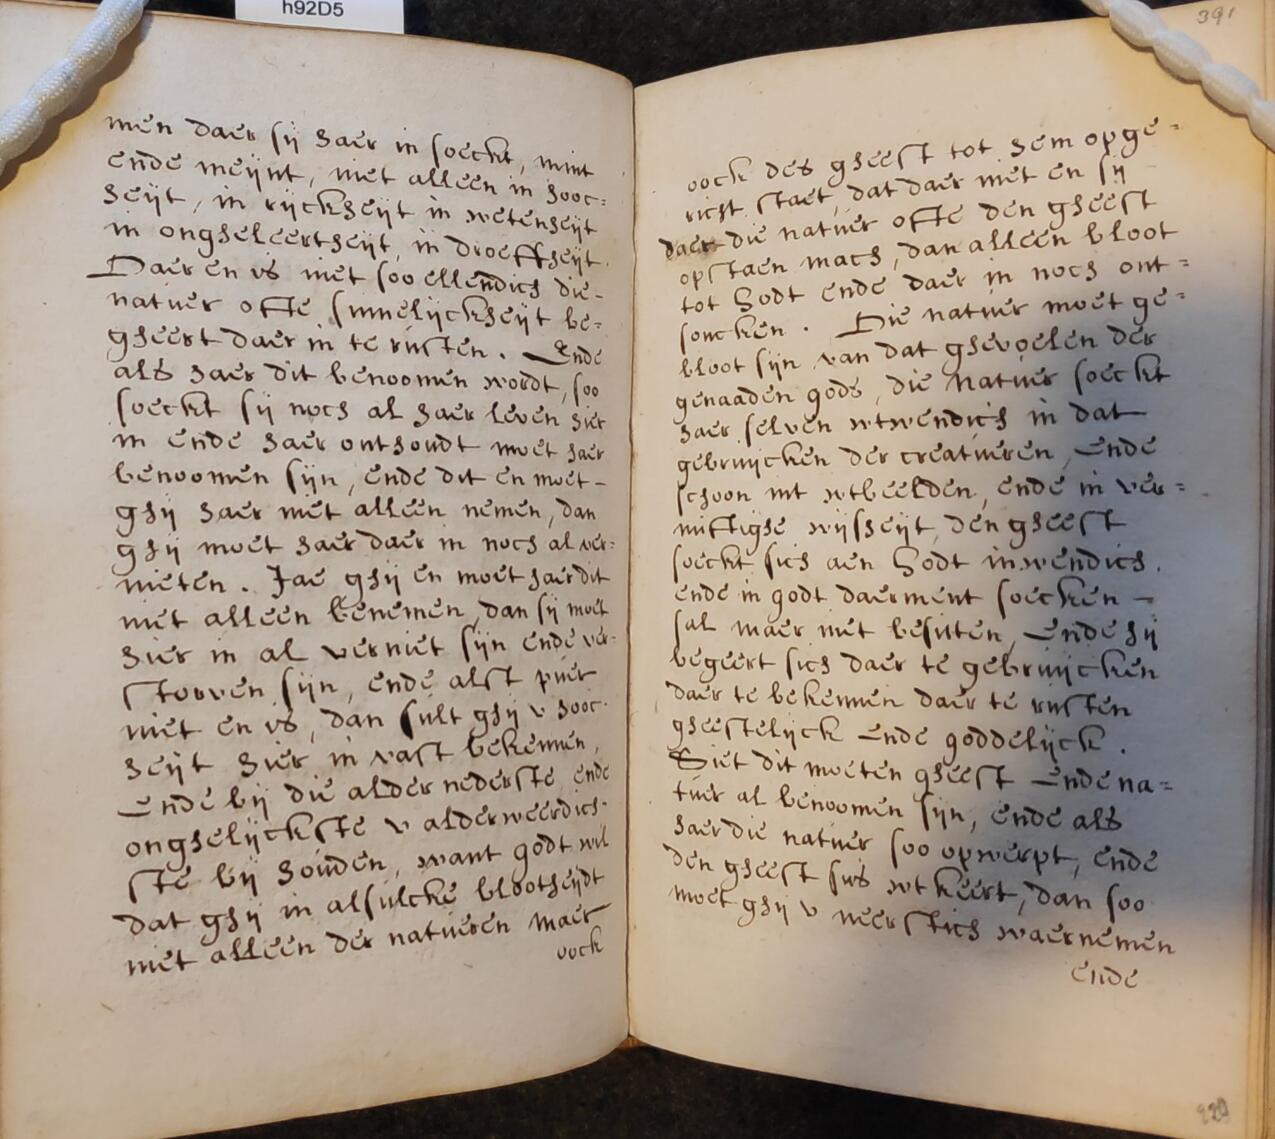 h92D5
men daer sij haer in soeckt, mint
ende meijnt, niet alleen in hooc=
heijt, in rijckheijt in wetenheijt
in ongheleertheijt, in droeffheijt.
Daer en is niet soo ellendich die-
natuer ofte sinnelijckheijt be=
gheert daer in te rusten. Ende
als haer dit benoomen wordt, soo
soeckt sij noch al haer leven hier
in ende haer onthoudt moet haer
benoomen sijn, ende dit en moet-
ghij haer niet alleen nemen, dan
ghij moet haer daer in noch al ver=
nieten. Jae ghij en moet haer dit
niet alleen benemen, dan sij moet
hier in al verniet sijn ende ver-
storven sijn, ende alst puer
niet en is, dan sult ghij v hooc-
heijt hier in vast bekennen,
Ende bij die alder nederste, ende
onghelijckste v alderweerdich-
ste bij houden, want godt wil
dat ghij in alsulcke blootheijdt
niet alleen der natueren maer
oock
391
oock des gheest tot hem opge=
richt staet, dat daer niet en sij
daer die natuer ofte den gheest
opstaen mach, dan alleen bloot
tot Godt ende daer in noch ont=
soncken. Die natuer moet ge=
bloot sijn van dat ghevoelen der
genaaden gods, die natuer soeckt
haer selven wtwendich in dat
gebruijcken der creatueren, Ende
schoon int wtbeelden, ende in ver=
nuftighe wijsheijt, den gheest
soeckt sich aen Godt inwendich.
ende in godt daerment soecken -
sal maer niet besitten, Ende hij
begeert sich daer te gebruijcken
daer te bekennen daer te rusten
gheestelijck Ende goddelijck.
Siet dit moeten gheest Ende na=
tuer al benoomen sijn, ende als
haer die natuer soo opwerpt, ende
den gheest sus wtkeert, dan soo
moet ghij v neerstich waernemen
ende